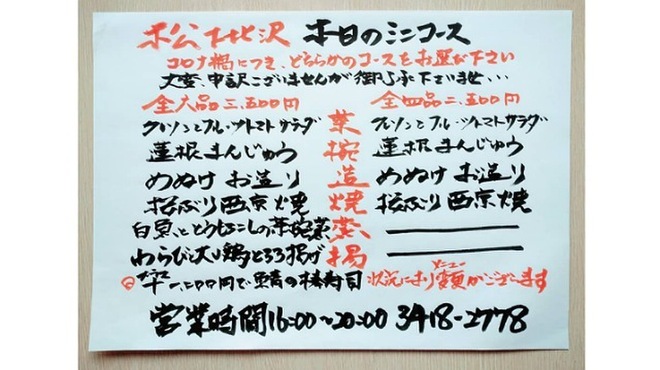 松下北沢 本日のミニコース
コロナ禍につき、どちらかのコースをお選び下さい
大変、申訳ございませんが御了承下さいませ、、、
全六品 三、五〇〇円
クレソンとフルーツトマトサラダ
蓮根まんじゅう
めぬけ お造り
桜ぶり 西京焼
白魚ととうもろこしの茶碗蒸
わらびと大山鶏とろろ揚げ
葉
椀
造
焼
蒸
揚
全四品 二、五〇〇円
クレソンとフルーツトマトサラダ
蓮根まんじゅう
めぬけ お造り
桜ぶり 西京焼
一、二〇〇円で 鯖の棒寿司
状況により メニュー変更がございます
営業時間16:00~20:00 3418-2778